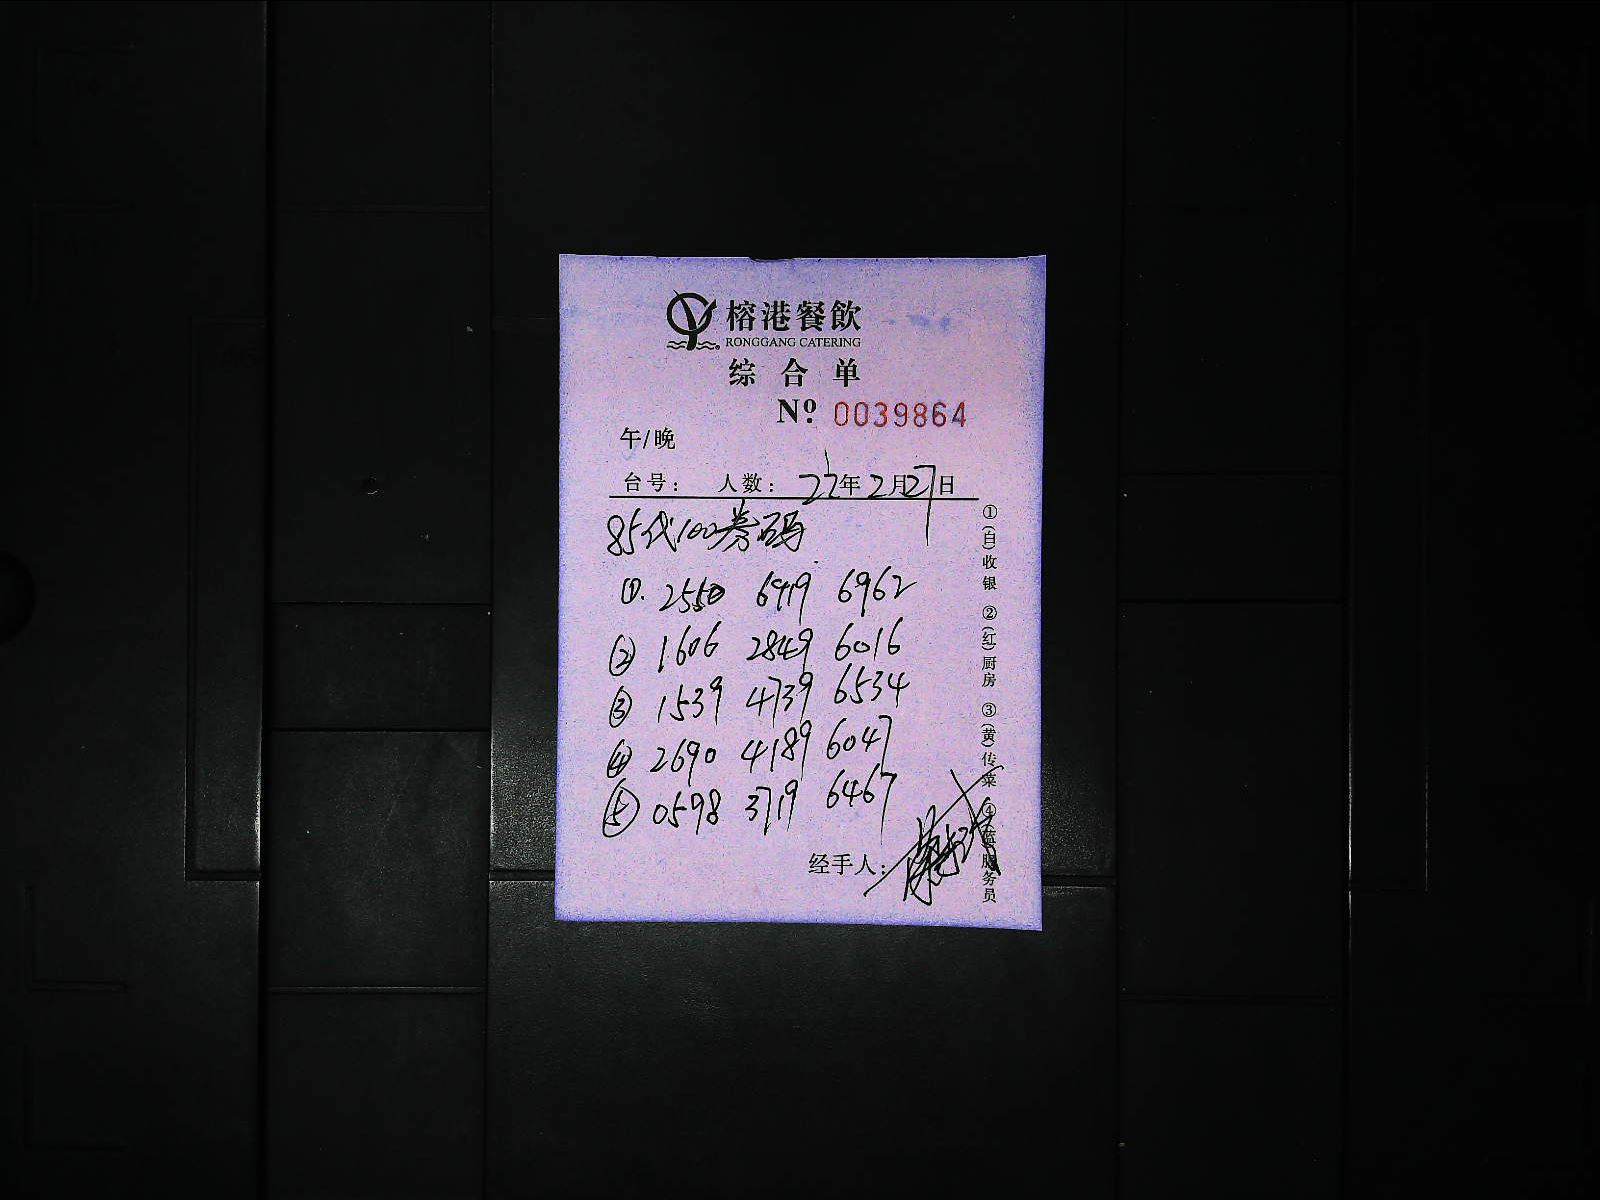 榕港餐飲
RONGGANG CATERING
综合单
Nº 0039864
午/晚
台号: 人数: 22年2月27日
85代100券码
①. 2550 6419 6962
② 1606 2849 6016
③ 1539 4739 6534
④ 2690 4189 6047
⑤ 0598 3719 6467
经手人:
①(白)收银 ②(红)厨房 ③(黄)传菜 ④ 服务员